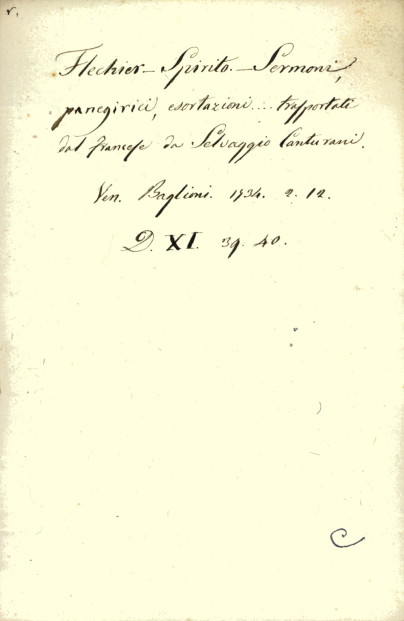 v.
Flechier – Spirito. – Sermoni,
panegirici, esortazioni .... trasportati
dal francese da Selvaggio Canturani.
Ven. Baglioni. 1734. 2. 12.
D. XI. 39. 40.
C